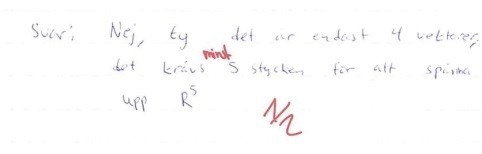 Svar: Nej, ty det är endast 4 vektorer,
det krävs minst 5 stycken för att spänna
upp R⁵